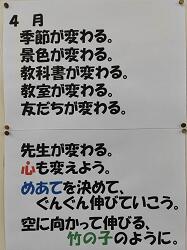 4 月
季節が変わる。
景色が変わる。
教科書が変わる。
教室が変わる。
友だちが変わる。
先生が変わる。
心も変えよう。
めあてを決めて、
ぐんぐん伸びていこう。
空に向かって伸びる、
竹の子のように。